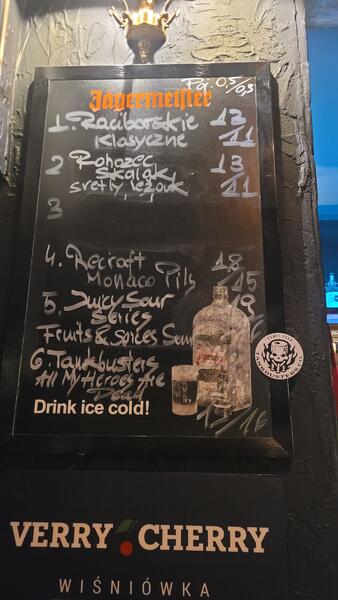 Poj. 0,5/0,3
Jägermeister
1. Raciborskie 13
Klasyczne 11
2 Rohozec 13
Skalak 11
světlý ležák
3
4. Recraft 18
Monaco Pils 15
5. Juicy Sour 19
Series
Fruits & Spices
6. Tankbusters
All My Heroes Are
Dead
Drink ice cold!
VERRY CHERRY
WIŚNIÓWKA